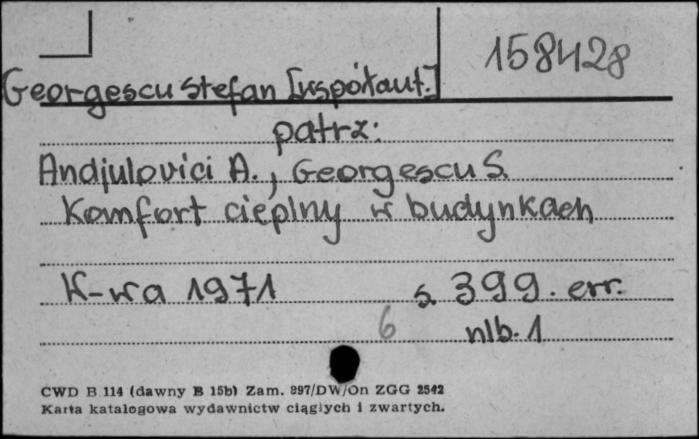 158428
Georgescu Stefan [współaut.]
patrz:
Andjulovici A., Georgescu S.
Komfort cieplny w budynkach
W-wa 1971 s. 399. err.
6 nlb. 1
CWD B 114 (dawny B 15b) Zam. 897/DW/On ZGG 2542
Karta katalogowa wydawnictw ciągłych i zwartych.